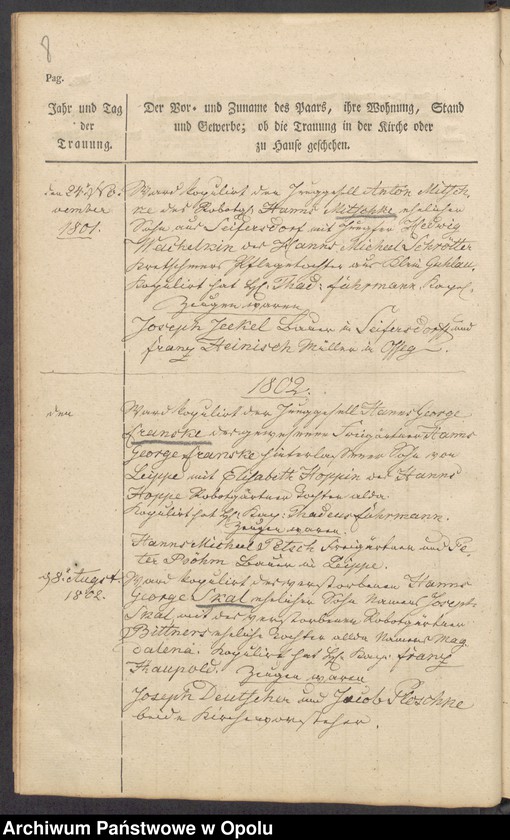 8
Pag.
Jahr und Tag
der
Trauung.
Der Vor- und Zuname des Paars, ihre Wohnung, Stand
und Gewerbe; ob die Trauung in der Kirche oder
zu Hause geschehen.
den 24. No-
vember
1801.
Ward kopulirt der Junggesell Anton Mitsch-
ke des Robotg. Hanns Mitschke ehelicher
Sohn aus Seifersdorf mit Jungfer Hedwig
des Hanns Michael Schrötter
Kretschmers Pflegetochter aus Klein
Kopulirt hat Thad: Fuhrmann
Zeugen waren
Joseph Jeckel Bauer in Seifersdorf und
Franz Heinisch Müller in
1802.
den
Ward kopulirt der Junggesell Hanns George
Franske des gewesenen Freigärtner Hanns
George Franske hinterlassener Sohn von
Leippe mit Elisabeth Hoppin des Hanns
Hoppe Robotgärtner Tochter alda.
Kopulirt hat Thadeus Fuhrmann.
Zeugen waren
Hanns Michael Petsch Freigärtner und Pe-
ter Böhm Bauer in Leippe.
8. August
1802.
Ward kopulirt des verstorbenen Hanns
George Skal ehelicher Sohn Namens Joseph
Skal mit des verstorbenen Robotgärtner
Bittners eheliche Tochter alda Namens Mag-
dalena. Kopulirt hat Franz
Thaupold. Zeugen waren
Joseph Deutscher und Jacob Ploschke
beide Kirchenvorsteher.
Archiwum Państwowe w Opolu